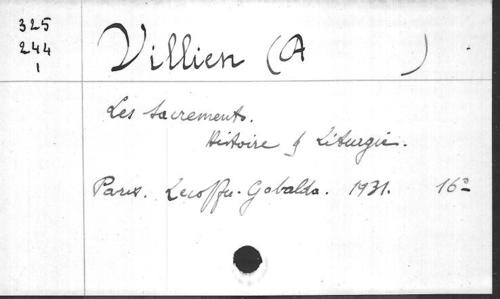 325
244
1
Villien (A )
Les sacrements.
Histoire & Liturgie.
Paris. Lecoffre-Gabalda. 1931. 16°